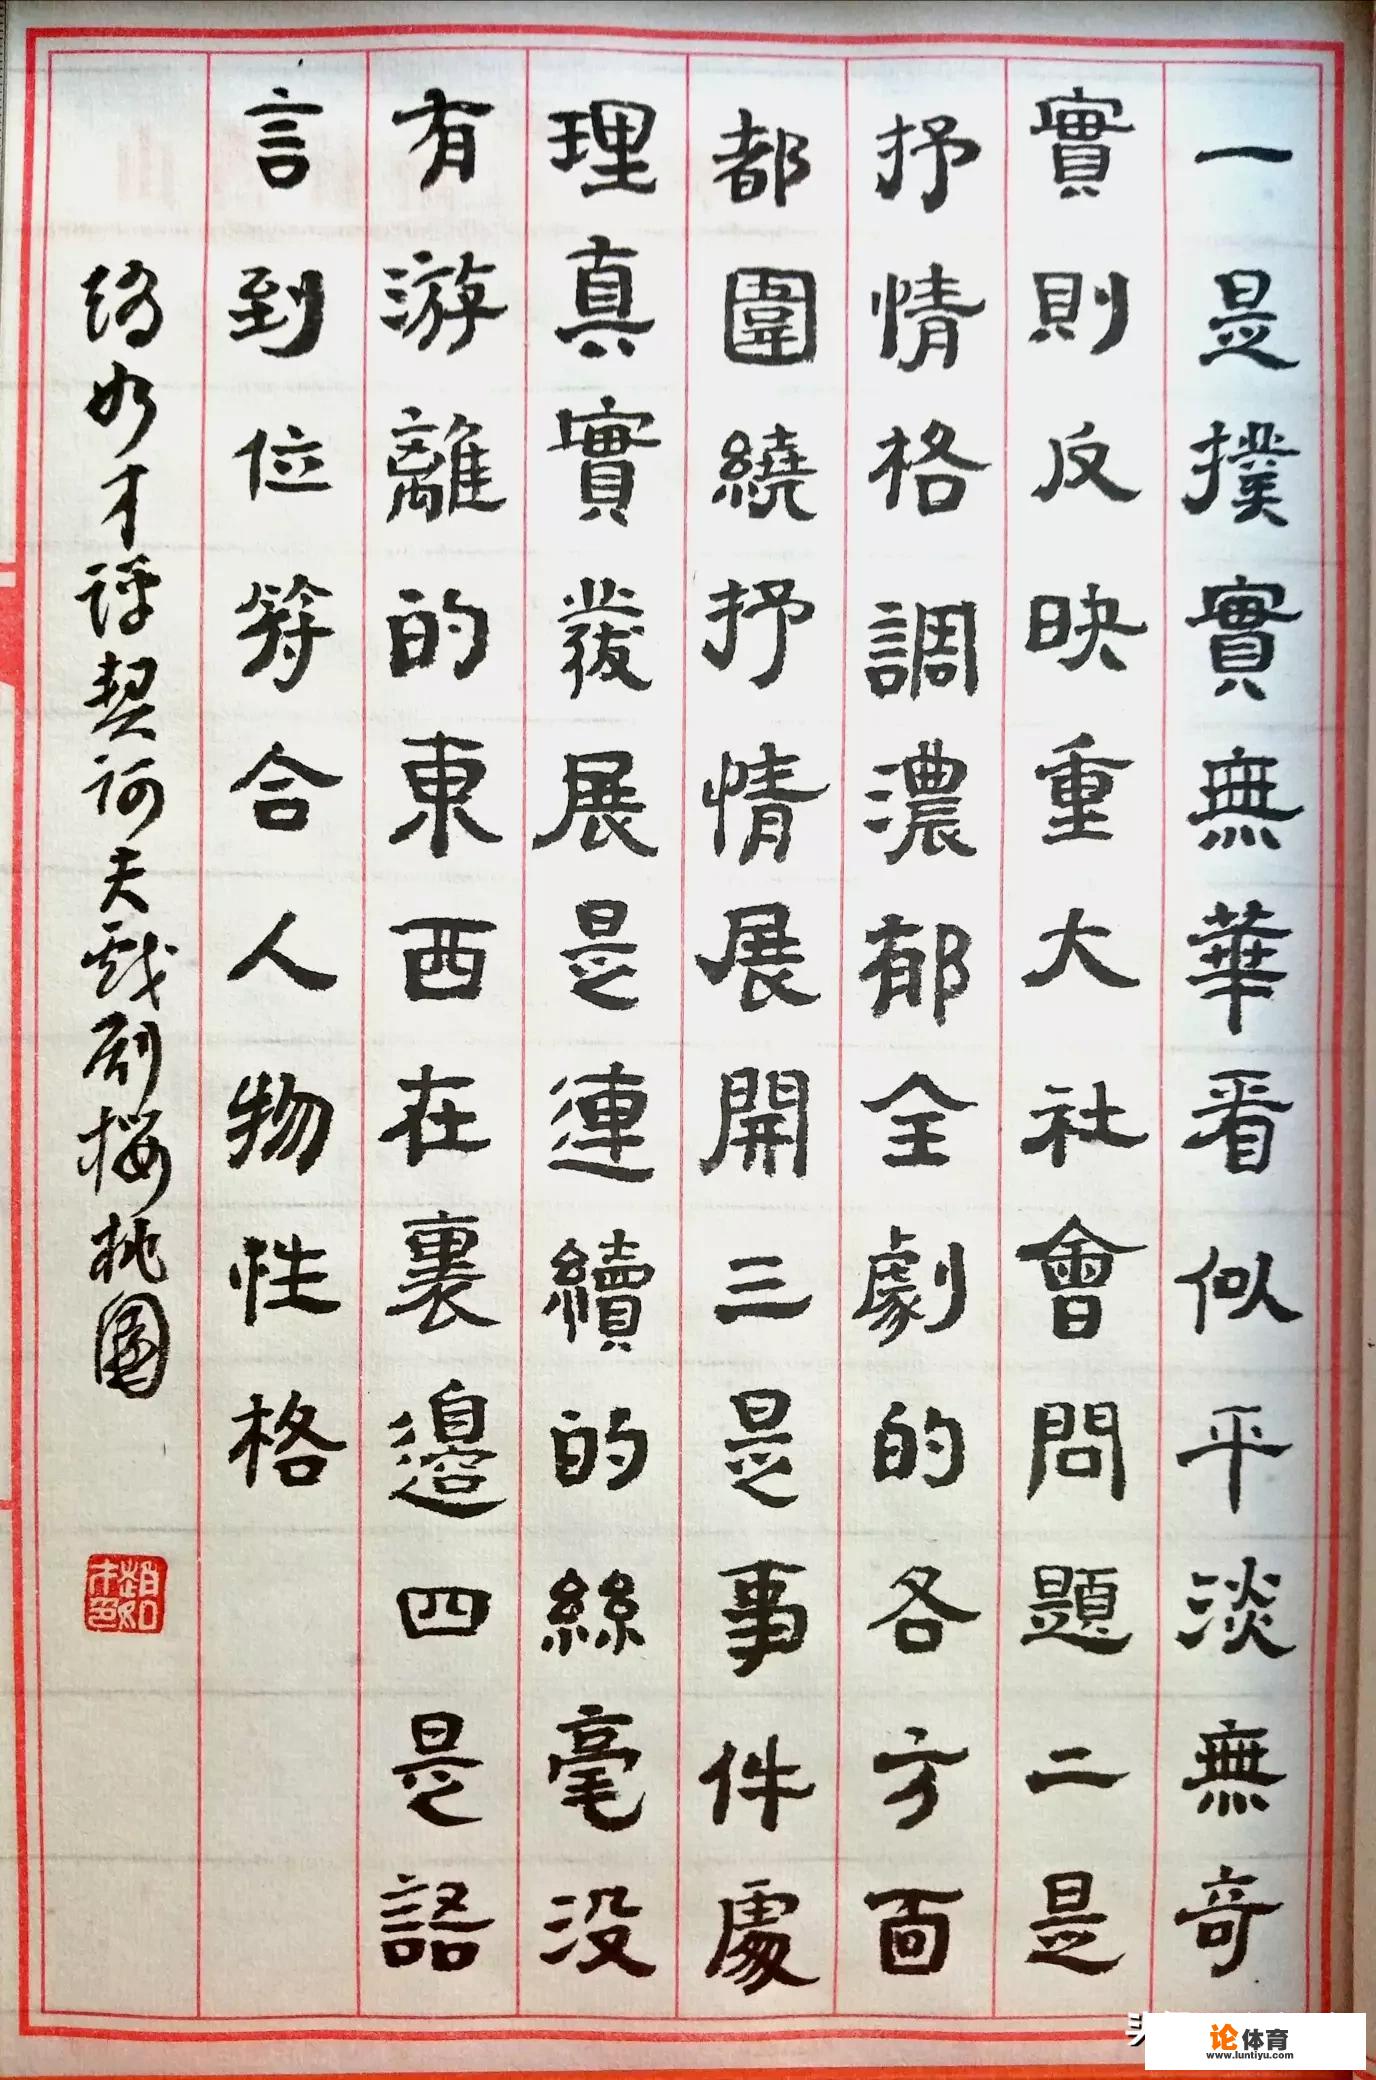 一是撲實無華看似平淡無奇
實則反映重大社會問題二是
抒情格調濃郁全劇的各方面
都圍繞抒情展開三是事件處
理真實發展是連續的絲毫没
有游離的東西在裏邊四是語
言到位符合人物性格
趙如才評契訶夫戲劇櫻桃園
趙如才印
论体育
www.luntiyu.com